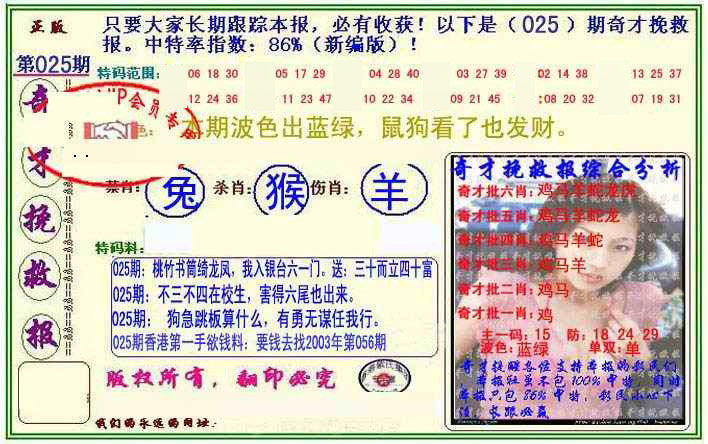 正版
只要大家长期跟踪本报，必有收获！以下是（025）期奇才挽救
报。中特率指数：86%（新编版）！
第025期
特码范围：
06 18 30 05 17 29 04 28 40 03 27 39 02 14 38 13 25 37
12 24 36 11 23 47 10 22 34 09 21 45 08 20 32 07 19 31
奇才挽救报
VIP会员专
色：本期波色出蓝绿，鼠狗看了也发财。
禁肖：兔 杀肖：猴 伤肖：羊
特码料：
025期：桃竹书筒绮龙凤，我入银台六一门。送：三十而立四十富
025期：不三不四在校生，害得六尾也出来。
025期： 狗急跳板算什么，有勇无谋任我行。
025期香港第一手欲钱料：要钱去找2003年第056期
版权所有，翻印必究
我们的永远的网址：
奇才挽救报综合分析
奇才批六肖：鸡马羊蛇龙虎
奇才批五肖：鸡马羊蛇龙
奇才批四肖：鸡马羊蛇
奇才批三肖：鸡马羊
奇才批二肖：鸡马
奇才批一肖：鸡
主一码：15 防：18 24 29
波色：蓝绿 单双：单
奇才挽救各位支持本报的彩民们
，本报驻虽不包100%中特，同时
本报只包86%中特，彩民小心下
注